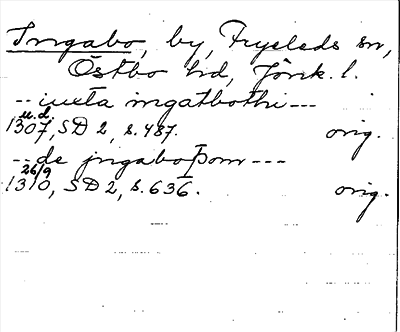 Ingabo, by, Fryeleds sn,
Östbo hd, Jönk. l.
-- iuxta ingatbothi ---
u.d.
1307, SD 2, s. 487. orig.
-- de jngaboþom ---
26/9
1310, SD 2, s. 636. orig.